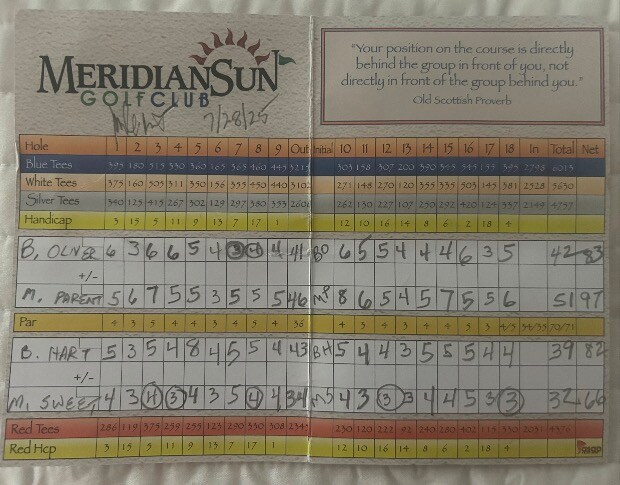 MERIDIANSUN
GOLFCLUB
7/28/25
"Your position on the course is directly
behind the group in front of you, not
directly in front of the group behind you."
Old Scottish Proverb
Hole 1 2 3 4 5 6 7 8 9 Out Initial 10 11 12 13 14 15 16 17 18 In Total Net
Blue Tees 395 180 515 330 360 165 365 460 445 3215 305 158 307 200 390 345 545 155 395 2798 6013
White Tees 375 160 505 311 330 156 355 450 440 3102 271 148 270 120 355 335 503 145 381 2528 5630
Silver Tees 340 125 415 267 302 129 297 380 353 2608 262 130 227 107 250 292 420 124 337 2149 4757
Handicap 3 15 5 11 9 13 7 17 1 12 10 16 14 8 6 2 18 4
B. OLNSE 6 3 6 6 5 4 3 4 4 41 BO 6 5 5 4 4 4 6 3 5 42 83
+/-
M. PARENT 5 6 7 5 5 3 5 5 5 46 MP 8 6 5 4 5 7 5 5 6 51 97
Par 4 3 5 4 4 3 4 5 4 36 4 3 4 3 4 4 5 3 4/5 34/35 70/71
B. HART 5 3 5 4 8 4 5 5 4 43 BH 5 4 4 3 5 5 5 4 4 39 82
+/-
M. SWEET 4 3 4 3 4 3 5 4 4 34 MS 4 3 3 3 4 4 5 3 3 32 66
Red Tees 286 119 375 259 255 123 290 330 308 2345 230 120 222 92 240 280 402 115 330 2031 4376
Red Hcp 3 15 5 11 9 13 7 17 1 12 10 16 14 8 6 2 18 4